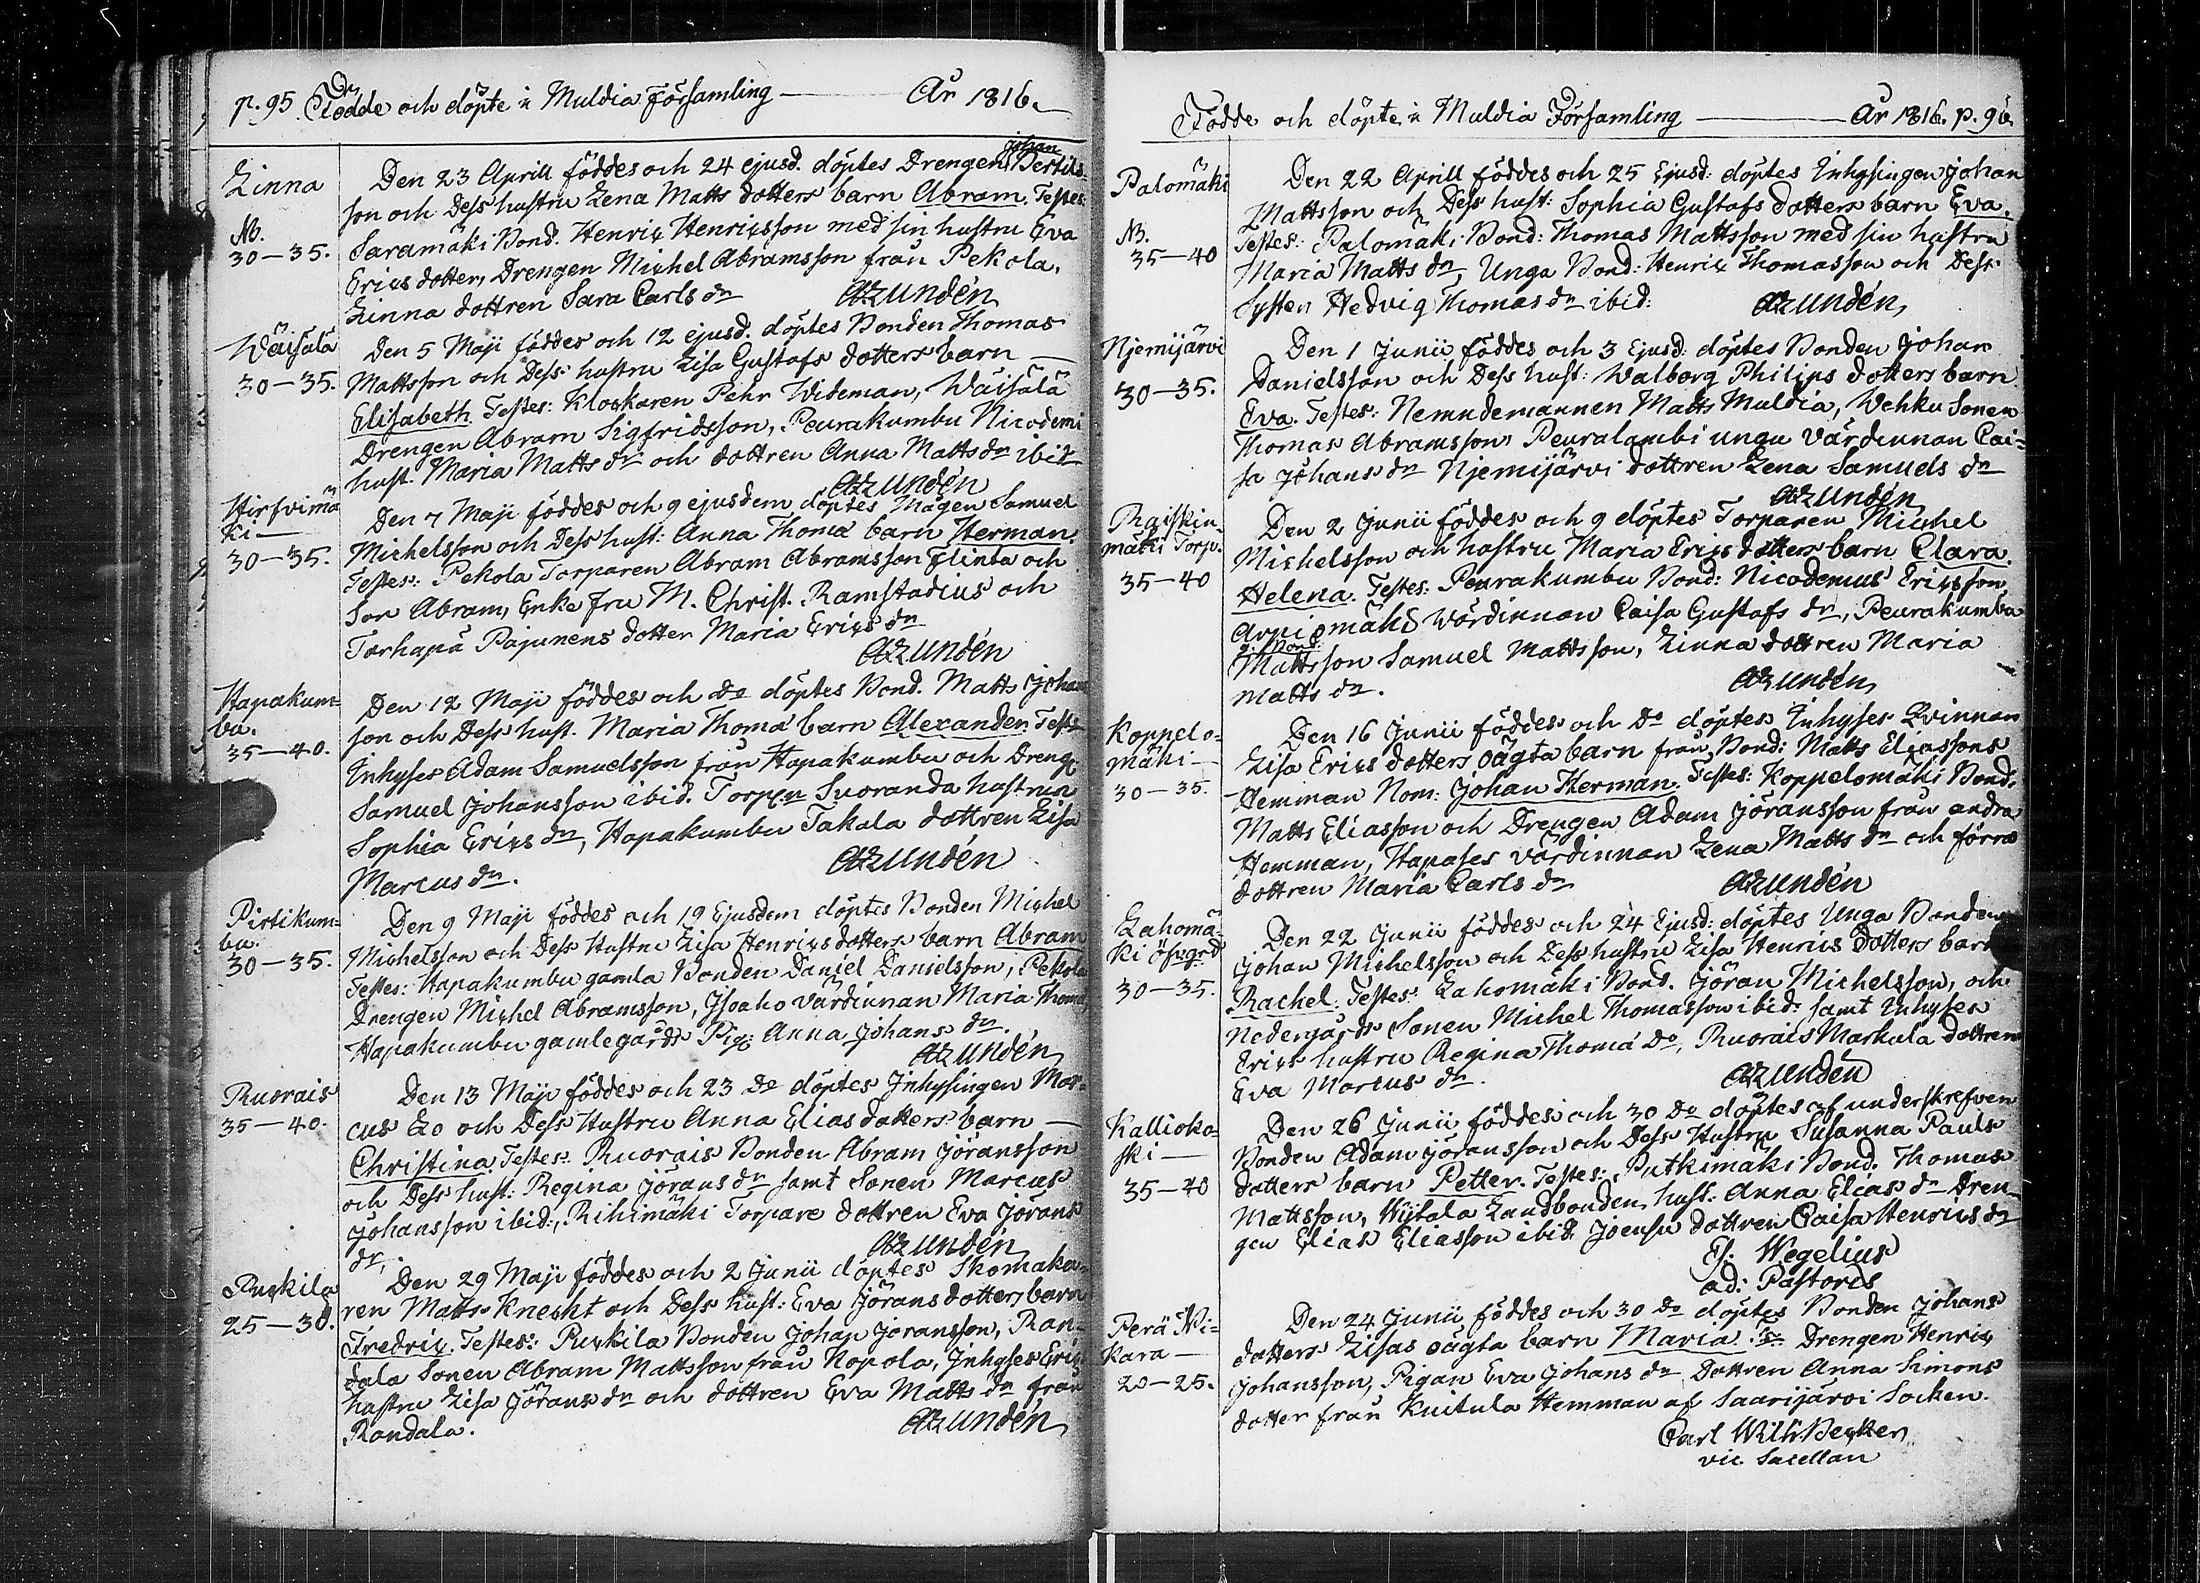 p. 95. Födde och döpte i Muldia Församling — År 1816.
Linna
Nb.
30—35.
Den 23 Aprill föddes och 24 ejusd. döptes Drengen Johan Bertils-
son och Dess hustru Lena Matts dotters barn Abram. Testes:
Saramäki Bond. Henric Henricsson med sin hustru Eva
Erics dotter, Drengen Michel Abramsson från Pekola,
Linna dottren Sara Carls dr
A Lundén
Wäisälä
30—35.
Den 5 Maji föddes och 12 ejusd. döptes Bonden Thomas
Mattsson och Dess hustru Lisa Gustafs dotters barn —
Elisabeth. Testes: Klockaren Pehr Wideman, Wäisälä
Drengen Abram Sigfridsson, Peurakumbu Nicodemi
hust. Maria Matts dr och dottren Anna Matts dr ibid
A Lundén
Hirfvimä
ki —
30—35.
Den 7 Maji föddes och 9 ejusdem döptes Mågen Samuel
Michelsson och Dess hust: Anna Thomæ barn Herman.
Testes: Pekola Torparen Abram Abramsson Flinta och
Son Abram, Enke fru M. Christ. Ramstadius och
Torhapä Pajunens dotter Maria Erics dr
A Lundén
Hapakum-
bu.
35—40.
Den 12 Maji föddes och do döptes Bond. Matts Johans
son och Dess hust. Maria Thomæ barn Alexander. Test:
Inhyses Adam Samuelsson från Hapakumbu och Dreng:
Samuel Johansson ibid. Torpen Suoranda hustrun
Sophia Erics dr, Hapakumbu Takala dottren Lisa
Marcus dr.
A Lundén
Pirtikum-
bu.
30—35.
Den 9 Maji föddes och 19 Ejusdem döptes Bonden Michel
Michelsson och Dess Hustru Lisa Henrics dotters barn Abram
Testes: Hapakumbu gamla Bonden Daniel Danielsson, Pekola
Drengen Michel Abramsson, Isoaho värdinnan Maria Thomæ,
Hapakumbu gamlegårds Pig: Anna Johans dr.
A Lundén
Ruorais
35—40.
Den 13 Maji föddes och 23 do döptes Inhysingen Mar-
cus Lo och Dess Hustru Anna Elias dotters barn —
Christina. Testes: Ruorais Bonden Abram Jöransson
och Dess hust: Regina Jörans dr samt Sonen Marcus
Johansson ibid:, Rihimäki Torpare dottren Eva Jörans
dr.
A Lundén
Puckila
25—30.
Den 29 Maji föddes och 2 Junii döptes Skomaka-
ren Matts Knecht och Dess hust: Eva Jörans dotters barn
Fredric. Testes: Puckila Bonden Johan Jöransson, Ran-
dala Sonen Abram Mattsson från Nopola, Inhyses Erics
hustru Lisa Jörans dr och dottren Eva Matts dr från
Randala.
A Lundén
Födde och döpte i Muldia Församling — År 1816. p. 96.
Palomäki
Nb.
35—40
Den 22 Aprill föddes och 25 Ejusd: döptes Inhysingen Johan
Mattsson och Dess hust: Sophia Gustafs dotters barn Eva.
Testes: Palomäki Bond: Thomas Mattsson med sin hustru
Maria Matts dr, Unga Bond: Henric Thomasson och Dess
Systen Hedvig Thomas dr ibid:
A Lundén
Njemijärvi
30—35.
Den 1 Junii föddes och 3 Ejusd: döptes Bonden Johan
Danielsson och Dess hust: Walborg Philips dotters barn
Eva. Testes: Nemndemannen Matts Muldia, Wehku Sonen
Thomas Abramsson, Peuralambi unga värdinnan Cai-
sa Johans dr Njemijärvi dottren Lena Samuels dr
A Lundén
Raiskin-
mäki Torp.
35—40
Den 2 Junii föddes och 9 döptes Torparen Michel
Michelsson och hustru Maria Erics dotters barn Clara
Helena. Testes: Peurakumbu Bond: Nicodemus Ericsson,
Arpiomäki Wärdinnan Caisa Gustafs dr, Peurakumbu
g. Bond:
Mattsson Samuel Mattsson, Linna dottren Maria
Matts dr.
A Lundén
Koppelo-
mäki —
30—35.
Den 16 Junii föddes och do döptes Inhyses Qvinnan
Lisa Erics dotters oägta barn från Bond: Matts Eliassons
Hemman Nom: Johan Herman. Testes: Koppelomäki Bond:
Matts Eliasson och Drengen Adam Jöransson från andra
Hemman, Hapases värdinnan Lena Matts dr och förra
dottren Maria Carls dr
A Lundén
Lahomä-
ki öfvgrd
30—35.
Den 22 Junii föddes och 24 Ejusd: döptes Unga Bonden
Johan Michelsson och Dess hustru Lisa Henrics dotters barn
Rachel. Testes: Lahomäki Bond. Jöran Michelsson, och
Nedergårds Sonen Michel Thomasson ibid: samt Inhyses
Erics hustru Regina Thomæ do, Ruorais Markula dottren
Eva Marcus dr.
A Lundén
Kallioko-
ski —
35—40
Den 26 Junii föddes och 30 do döptes af underskrefven
Bonden Adam Jöransson och Dess Hustru Susanna Pauls
dotters barn Petter. Testes: Putkimäki Bond. Thomas
Mattsson, Wijtala Landbonden hust: Anna Elias dr Dren-
gen Elias Eliasson ibid: Joensu dottren Caisa Henrics dr
Es. Wegelius
ad: Pastoris
Perä Ni-
kara —
20—25.
Den 24 Junii föddes och 30 do döptes Bonden Johans
dotters Lisas oägta barn Maria. Drengen Henric
Johansson, Pigan Eva Johans dr Dottren Anna Simons
dotter från Kuitula Hemman af Saarijärvi Socken.
Carl Wilh Becker
vic. Sacellan